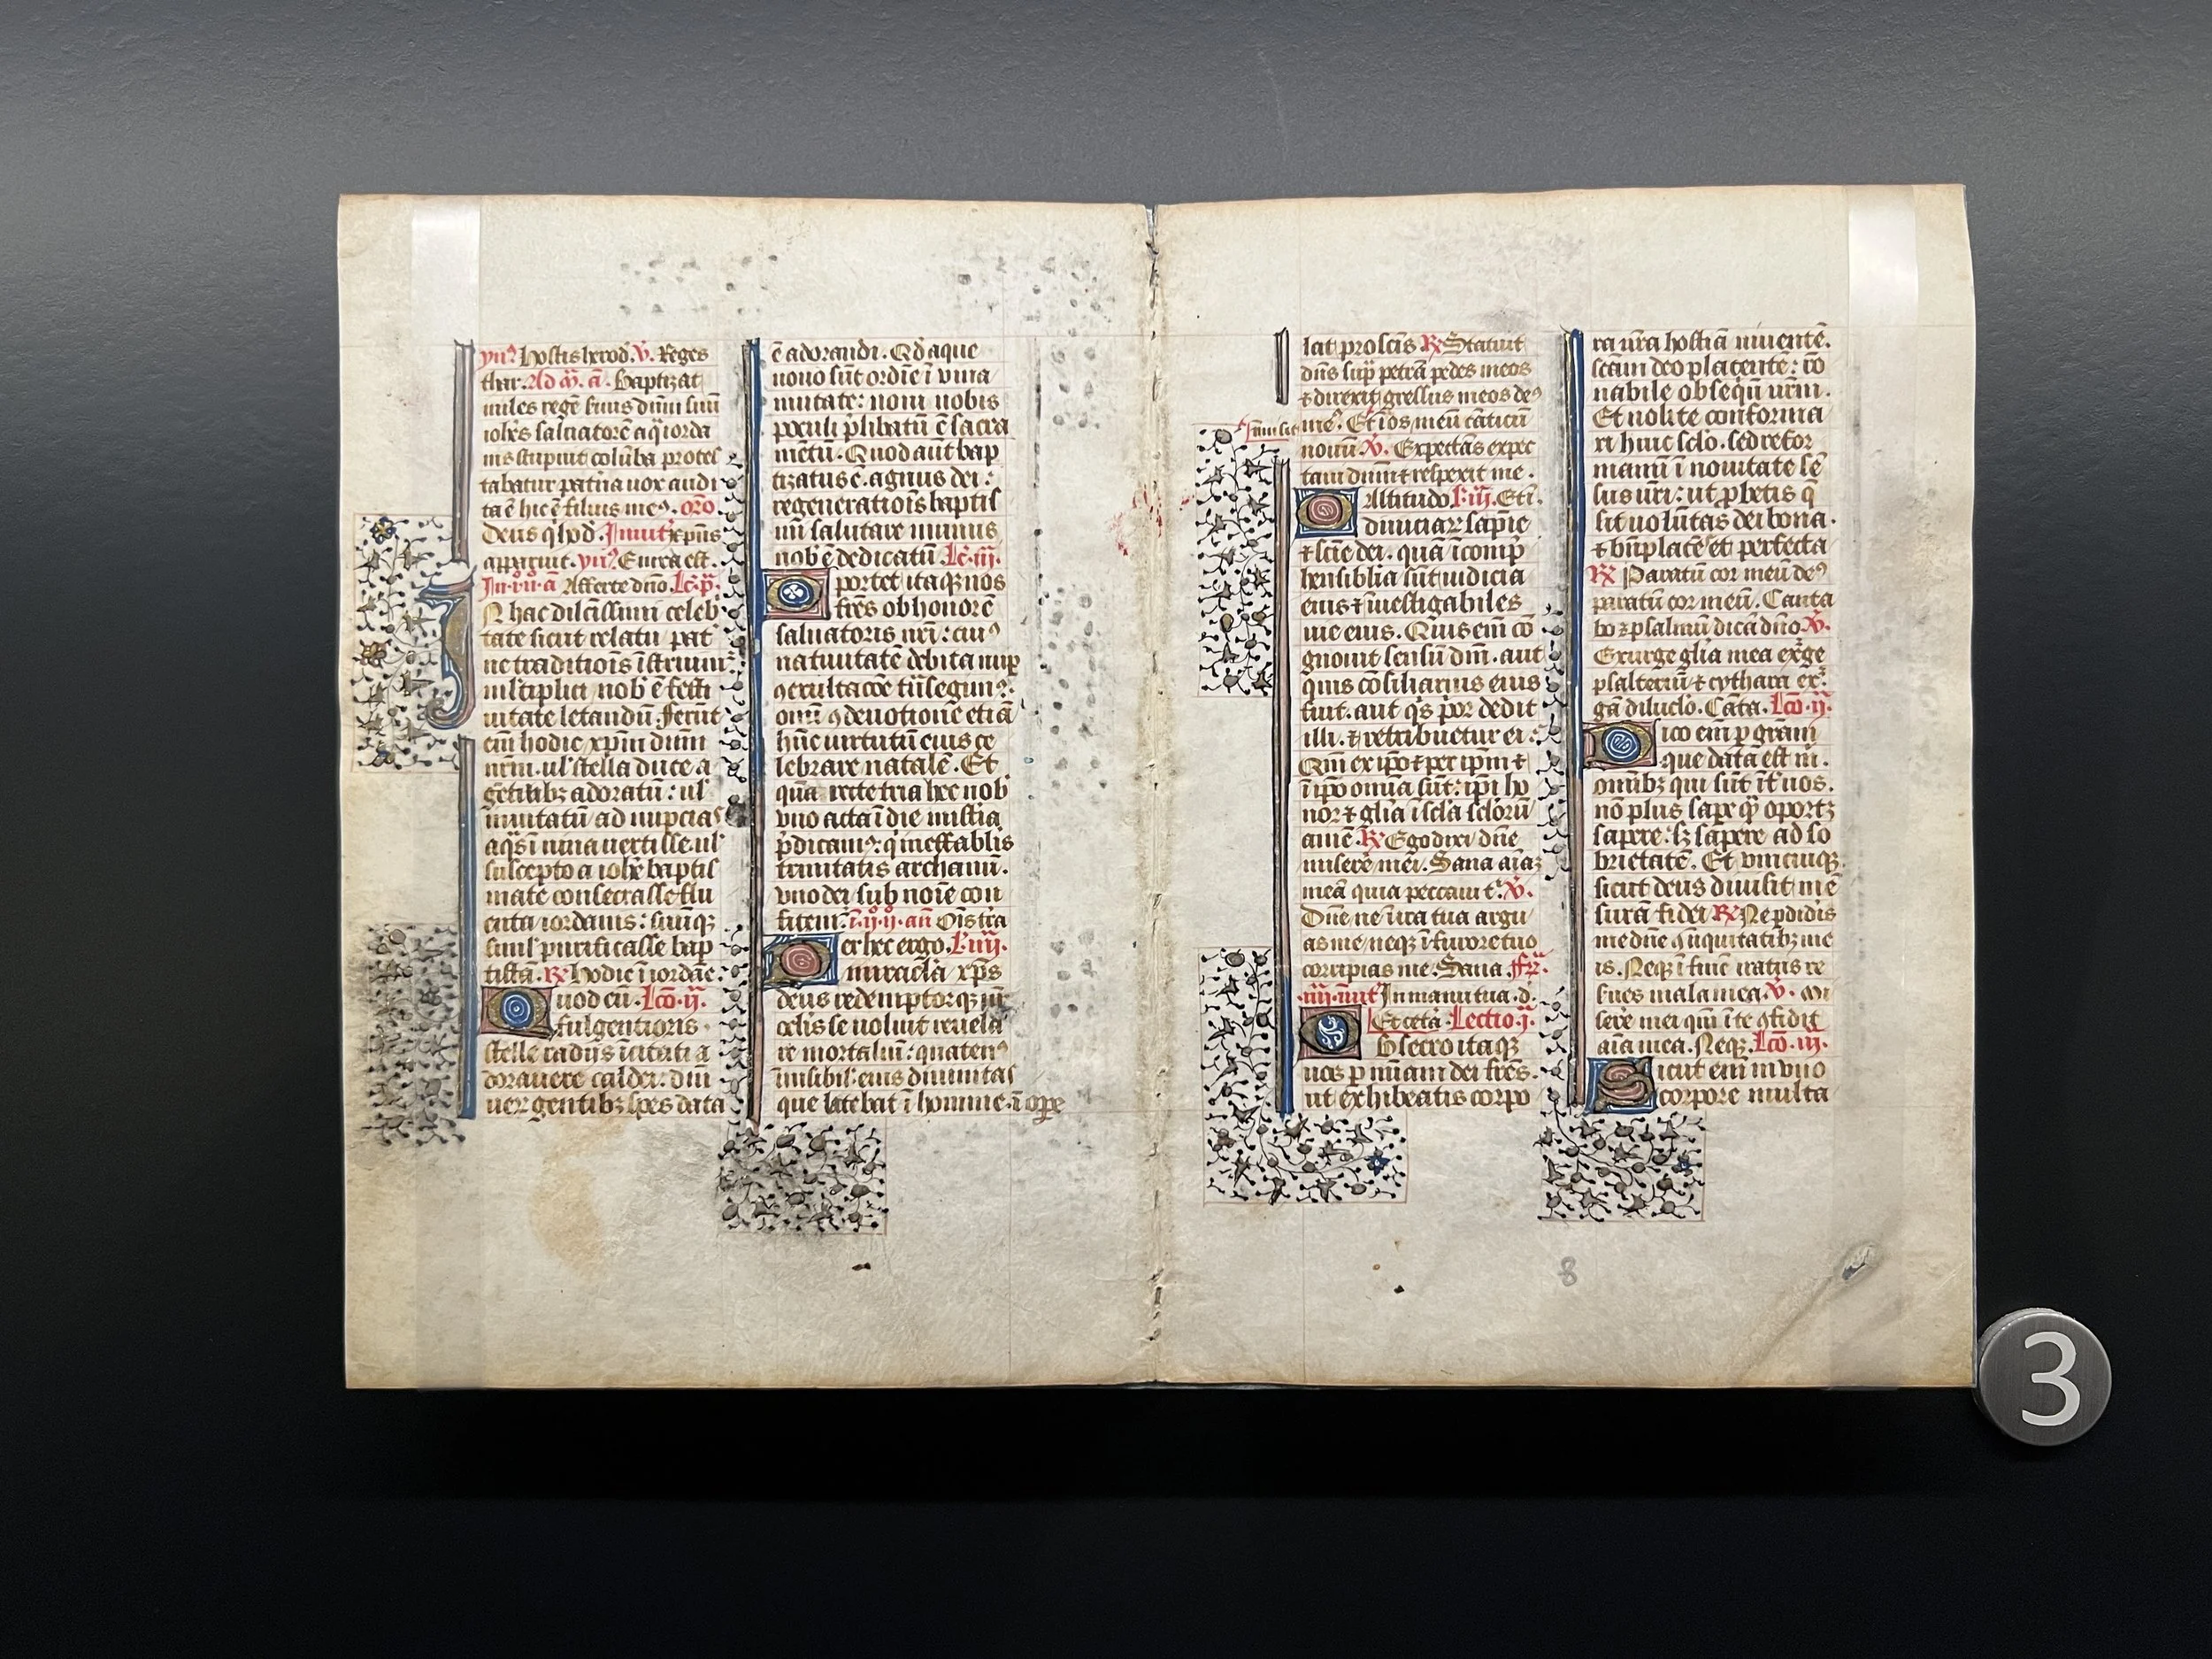 ynꝰ Hostis herod. V̓. Reges
thar. Ad m̄. a. Baptizat
miles regē seruus dnm̄ suū
ioh̄es saluatorē aq̄ iorda
nis stupuit colūba protes
tabatur paterna uox audi
ta ē hic ē filius meꝰ. oro
Deus q̄ hod. Inuit xp̄us
apparuit. ynꝰ. E
In .i. n̊. a Afferte dn̄o Lc̄. p̄.
N hac dilc̄issimi celeb
tate sicut relatu pat
ne traditiōis īstruim̄
nob̄ ē festi
uitate letandū. Ferūt
em̄ hodie xp̄m dnm̄
nr̄m. ul̓ stella duce a
gētibꝫ adoratū: ul̓
inuitatū ad nupcias
aq̄s ī uina uertisse. ul̓
suscepto a ioh̄e baptis
mate consecrasse flu
enta iordanis: suūqꝫ
simul̓ purificasse bap
tistā. ℞ Hodie ī iordāe:
Quod cū. Lcō. ij.
fulgentioris
stelle radijs īcitati a
dorauere caldei. diu
gentibꝫ spes data
ē adorandi. Qd̓ aque
nouo sūt ordīe ī uina
mutate: noui nobis
poculi p̄libatū ē sacra
mētū. Quod aūt bap
tizatus ē. agnus dei:
regeneratiōis baptis
mi salutare munus
nob̄ ē dedicatū Lc̄. iij.
Oportet itaqꝫ nos
frēs ob honorē
saluatoris nr̄i: cuiꝰ
natiuitatē debita nup
ꝯ exultacōe
oniū ꝯ deuotione etiā
hūc uirtutū eius ce
lebrare natalē. Et
quā recte tria hec nob̄
uno acta ī die mistia
p̄dicam̄: q̄ ineffabilis
trinitatis archanū.
uno dei sub noīe con
fitem̄. ī. ij. n̊. an̄ Oīs tr̄a
Per hec ergo. L̄. iiij.
miracl̄a xp̄s
deus redemptorqꝫ nr̄
celis se uoluit reuela
re mortaliū: quatenꝰ
inuisibil̓ eius diuinitas
que latebat ī homine. ī ope
lat pro scīs ℞ Statuit
dn̄s sup̄ petrā pedes meos
⁊ direxit gressus meos deꝰ
Īmisit
meꝰ. Et ī os meū cāticū
nouū. V̓. Expectās expec
taui dnm̄ ⁊ respexit me.
O Altitudo L̄. iij. Etī.
diuiciaꝝ sapīe
⁊ scīe dei. quā īcomp̄
hensibīlia sūt iudicia
eius ⁊ īuestigabiles
uie eius. Quis em̄ co
gnouit sensū dnī. aut
quis cōsiliarius eius
fuit. aut q̓s prior dedit
illi. ⁊ retribuetur ei:
Qm̄ ex ip̄o ⁊ per ip̄m ⁊
ī ip̄o omnia sūt: ip̄i ho
nor ⁊ glīa ī scl̄a scl̄orū
amē. ℞ Ego dixi dn̄e
miserē mei. Sana aīaꝫ
meā quia peccaui t̓. V̓.
Dn̄e ne ī ira tua argu
as me neqꝫ ī furore tuo
corripias me. Sana
Inuit In manu tua d.
Et cetā. Lectio. j.
Obsecro itaqꝫ
uos p̲ mīam dei frēs.
ut exhibeatis corpo
ra ūra hostiā uiuentē.
sc̄am deo placentē: rō
nabile obsequiū ur̄m.
Et nolite conforma
ri huic sclo. sed refor
mamī ī nouitate sē
sus ūri: ut p̲betis q̄
sit uolūtas dei bona.
⁊ bn̄placēs et perfecta
℞ Paratū cor meū deꝰ
paratū cor meū. Canta
bo ⁊ psalmū dicā dn̄o V̓.
Exurge glīa mea ex̄ge
psalteriū ⁊ cythara ex̄.
gā diluclo. Cāta. Lcō. ij.
Dico em̄ p̲ grām
que data est m̄.
omībꝫ qui sūt īt̓ uos.
nō plus sape q̄ oportꝫ
sapere: sꝫ sapere ad so
brietatē. Et unicuiqꝫ
sicut deus diuisit mē
surā fidei ℞ Ne p̲didis
me dn̄e cū iniquitatibꝫ me
is. Neqꝫ ī finē iratus re
serues mala mea. V̓. Mi
sere mei qm̄ ī te ꝯfidit
aīa mea. Neqꝫ. Lcō. iij.
Sicut em̄ in uno
corpore multa
8
3